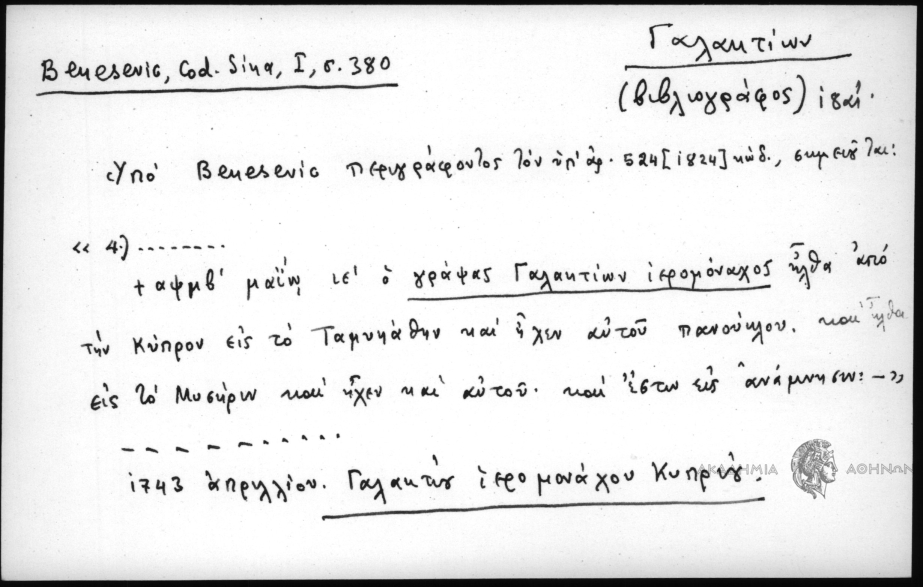 Γαλακτίων
Benesevic, Cod. Sina, I, σ. 380
(βιβλιογράφος) ιηαί.
Ὑπό Benesevic περιγράφοντος τόν ὑπ' ἀρ. 524 [1824] κώδ., σημειοῦται:
« 4.) ..........
+ αψμβ' μαΐῳ ιε' ὁ γράψας Γαλακτίων ἱερομόναχος ἦλθα ἀπό
τήν Κύπρον εἰς τό Ταμυκάθην καί ἦχεν αὐτοῦ πανούκλου. καί ἦλθα
εἰς τό Μυσήριν καί ἦχεν καί αὐτοῦ. καί ἔστιν εἰς ἀνάμνησιν: — »
1743 ἀπριλλίου. Γαλακτίου ἱερομονάχου Κυπρίου.
ΑΚΑΔΗΜΙΑ ΑΘΗΝΩΝ